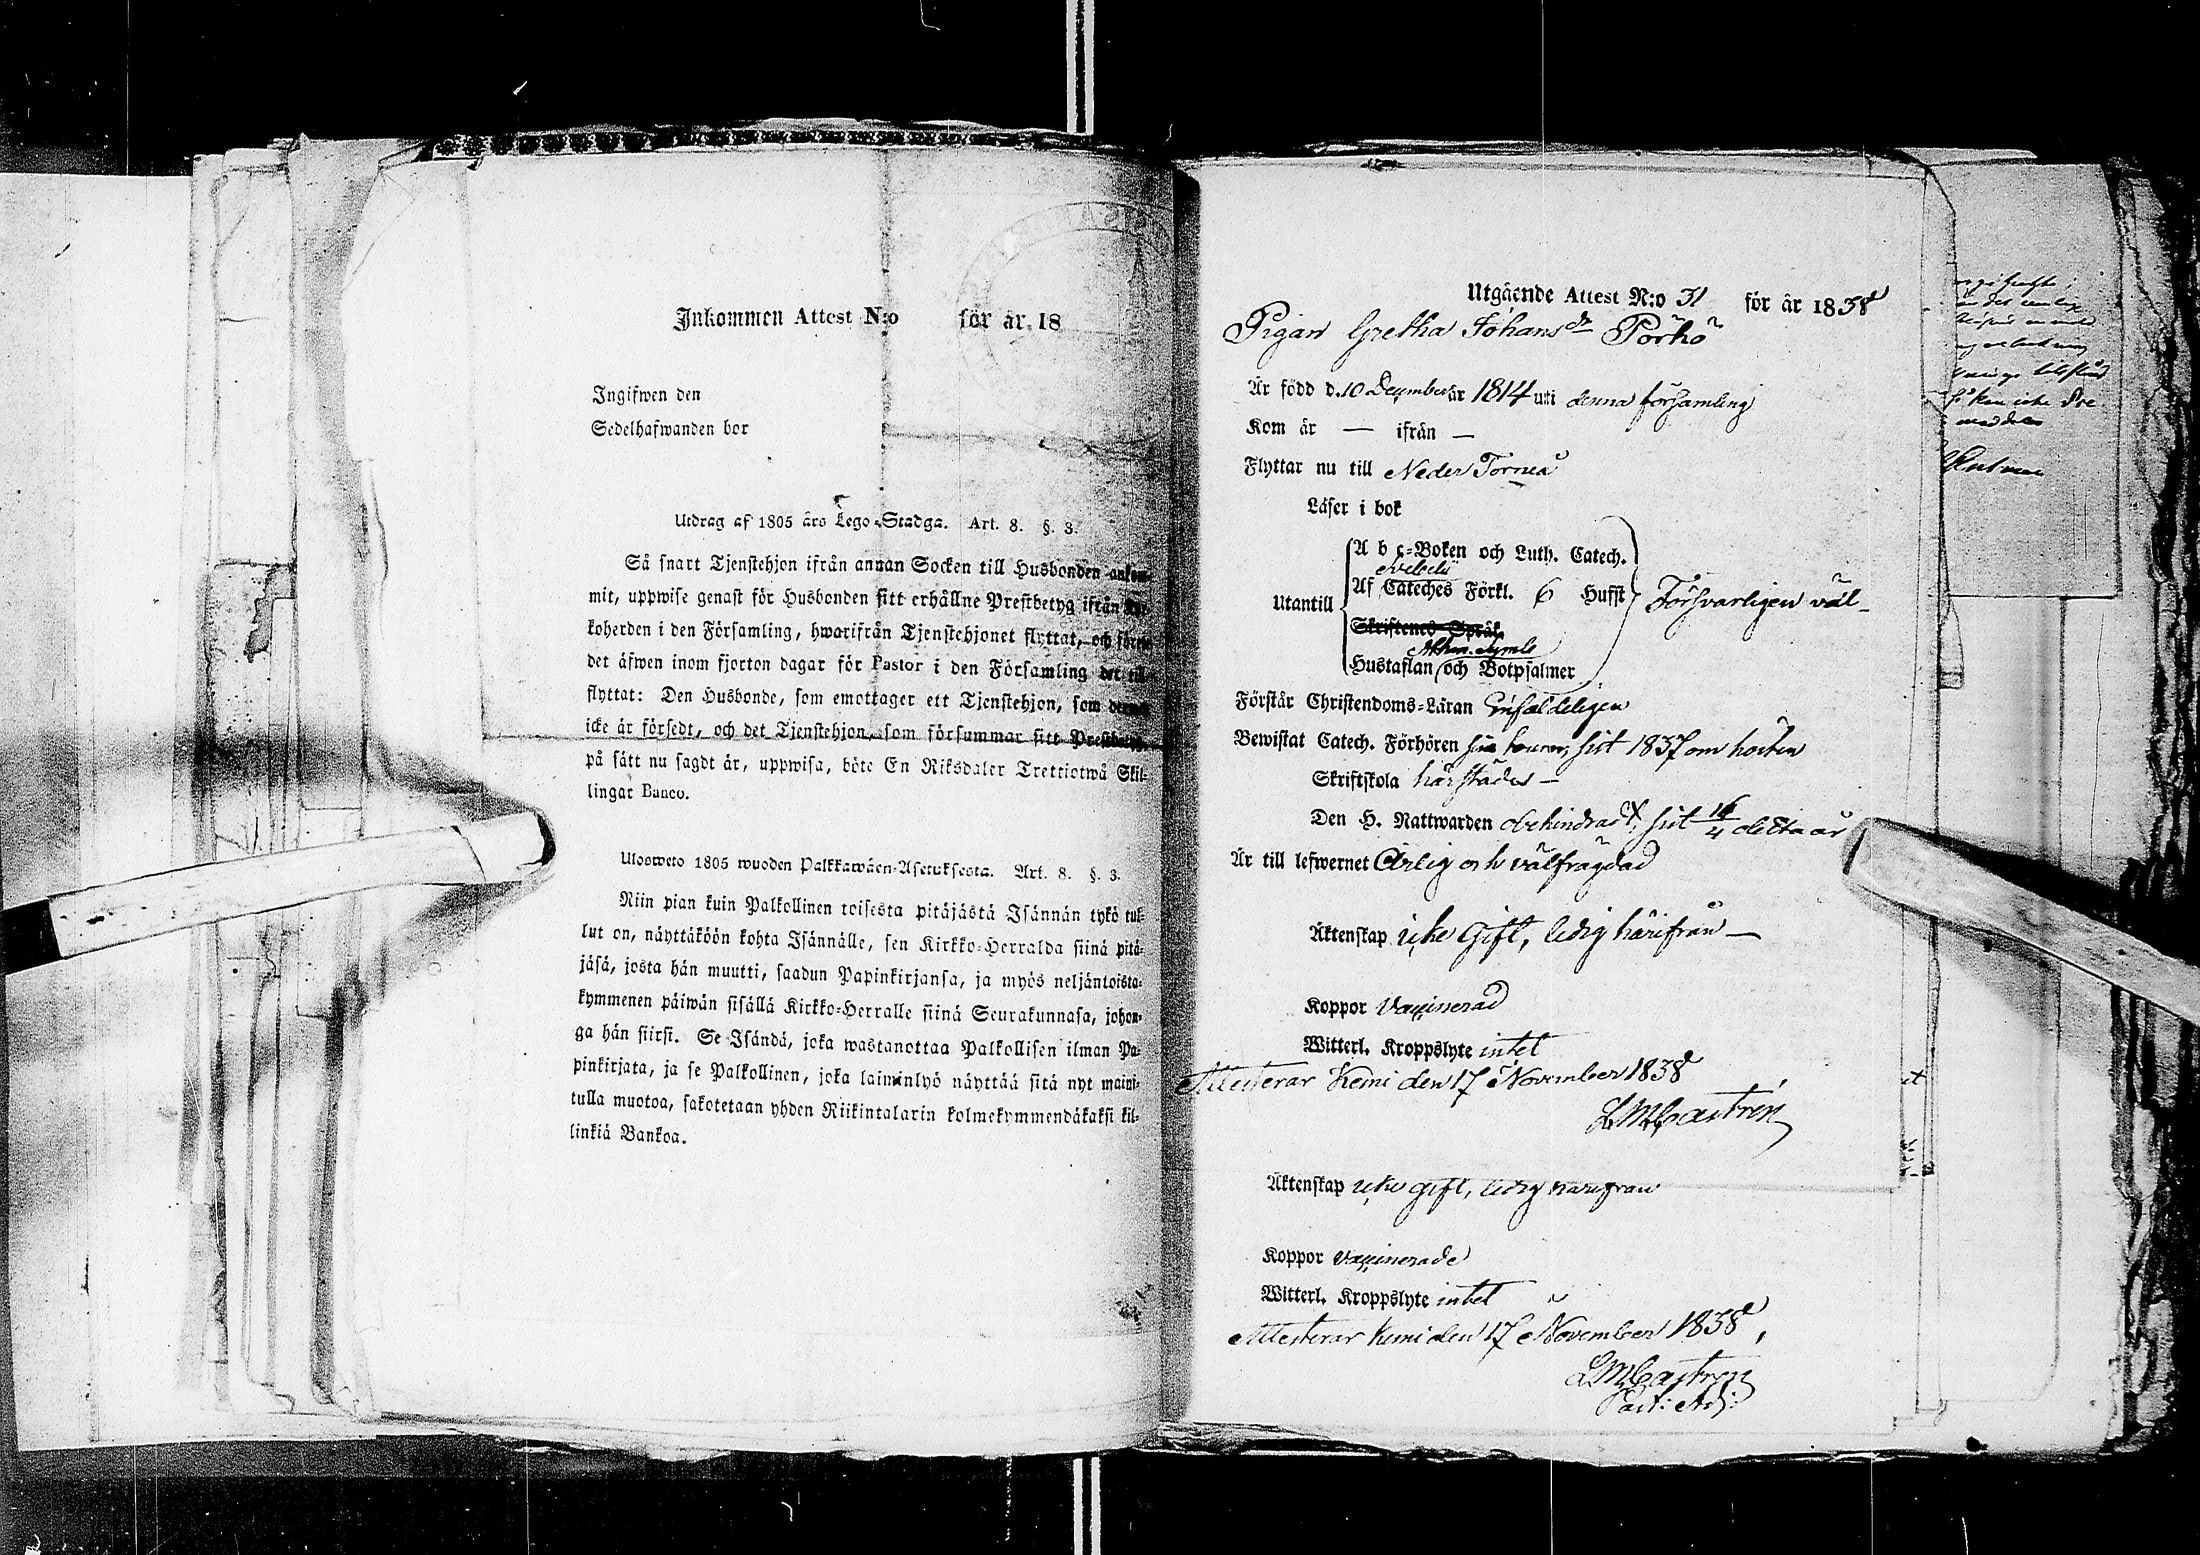 Inkommen Attest N:o för år 18
Ingifwen den
Sedelhafwanden bor
Utdrag af 1805 års Lego-Stadga. Art. 8. §. 3.
Så snart Tjenstehjon ifrån annan Socken till Husbonden ankom-
mit, uppwise genast för Husbonden sitt erhållne Prestbetyg ifrån
koherden i den Församling, hwarifrån Tjenstehjonet flyttat, och
det äfwen inom fjorton dagar för Pastor i den Församling det till
flyttat: Den Husbonde, som emottager ett Tjenstehjon, som
icke är försedt, och det Tjenstehjon, som försummar sitt Prestbetyg,
på sätt nu sagdt är, uppwisa, böte En Riksdaler Trettiotwå Skil-
lingar Banco.
Ulosweto 1805 wuoden Palkkawäen-Asetuksesta. Art. 8. §. 3.
Niin pian kuin Palkollinen toisesta pitäjästä Isännän tykö tul-
lut on, näyttäköön kohta Isännälle, sen Kirkko-Herralda siinä pitä-
jäsä, josta hän muutti, saadun Papinkirjansa, ja myös neljäntoista-
kymmenen päiwän sisällä Kirkko-Herralle siinä Seurakunnasa, johon-
ga hän siirsi. Se Isändä, joka wastanottaa Palkollisen ilman Pa-
pinkirjata, ja se Palkollinen, joka laiminlyö näyttää sitä nyt maini-
tulla muotoa, sakotetaan yhden Riikintalarin kolmekymmendäkaksi kil-
linkiä Bankoa.
Utgående Attest N:o 31 för år 1838
Pigan Gretha Johansdr Pörhö
Är född d. 10 December år 1814 uti denna församling
Kom år — ifrån —
Flyttar nu till Neder Torneå
Läser i bok
A b c-Boken och Luth. Catech.
Svebelii
Af Cateches Förkl. 6 Hufst
Utantill Försvarligen väl
Skriftenes Språk
Athan. Symb.
Hustaflan och Botpsalmer
Förstår Christendoms-Läran Enfaldeligen
Bewistat Catech. Förhören sist 1837 om hösten
Skriftskola härstädes —
Den H. Nattwarden obehindrad, sist 16/4 detta år
Är till lefwernet Ärlig och välfrägdad
Äktenskap icke Gift, ledig härifrån —
Koppor Vaccinerad
Witterl. Kroppslyte intet
Attesterar Kemi den 17 November 1838
LMCastrén
Äktenskap icke gift, ledig härifrån
Koppor Vaccinerade
Witterl. Kroppslyte intet
Attesterar Kemi den 17 November 1838,
LMCastrén
Past: Adj: